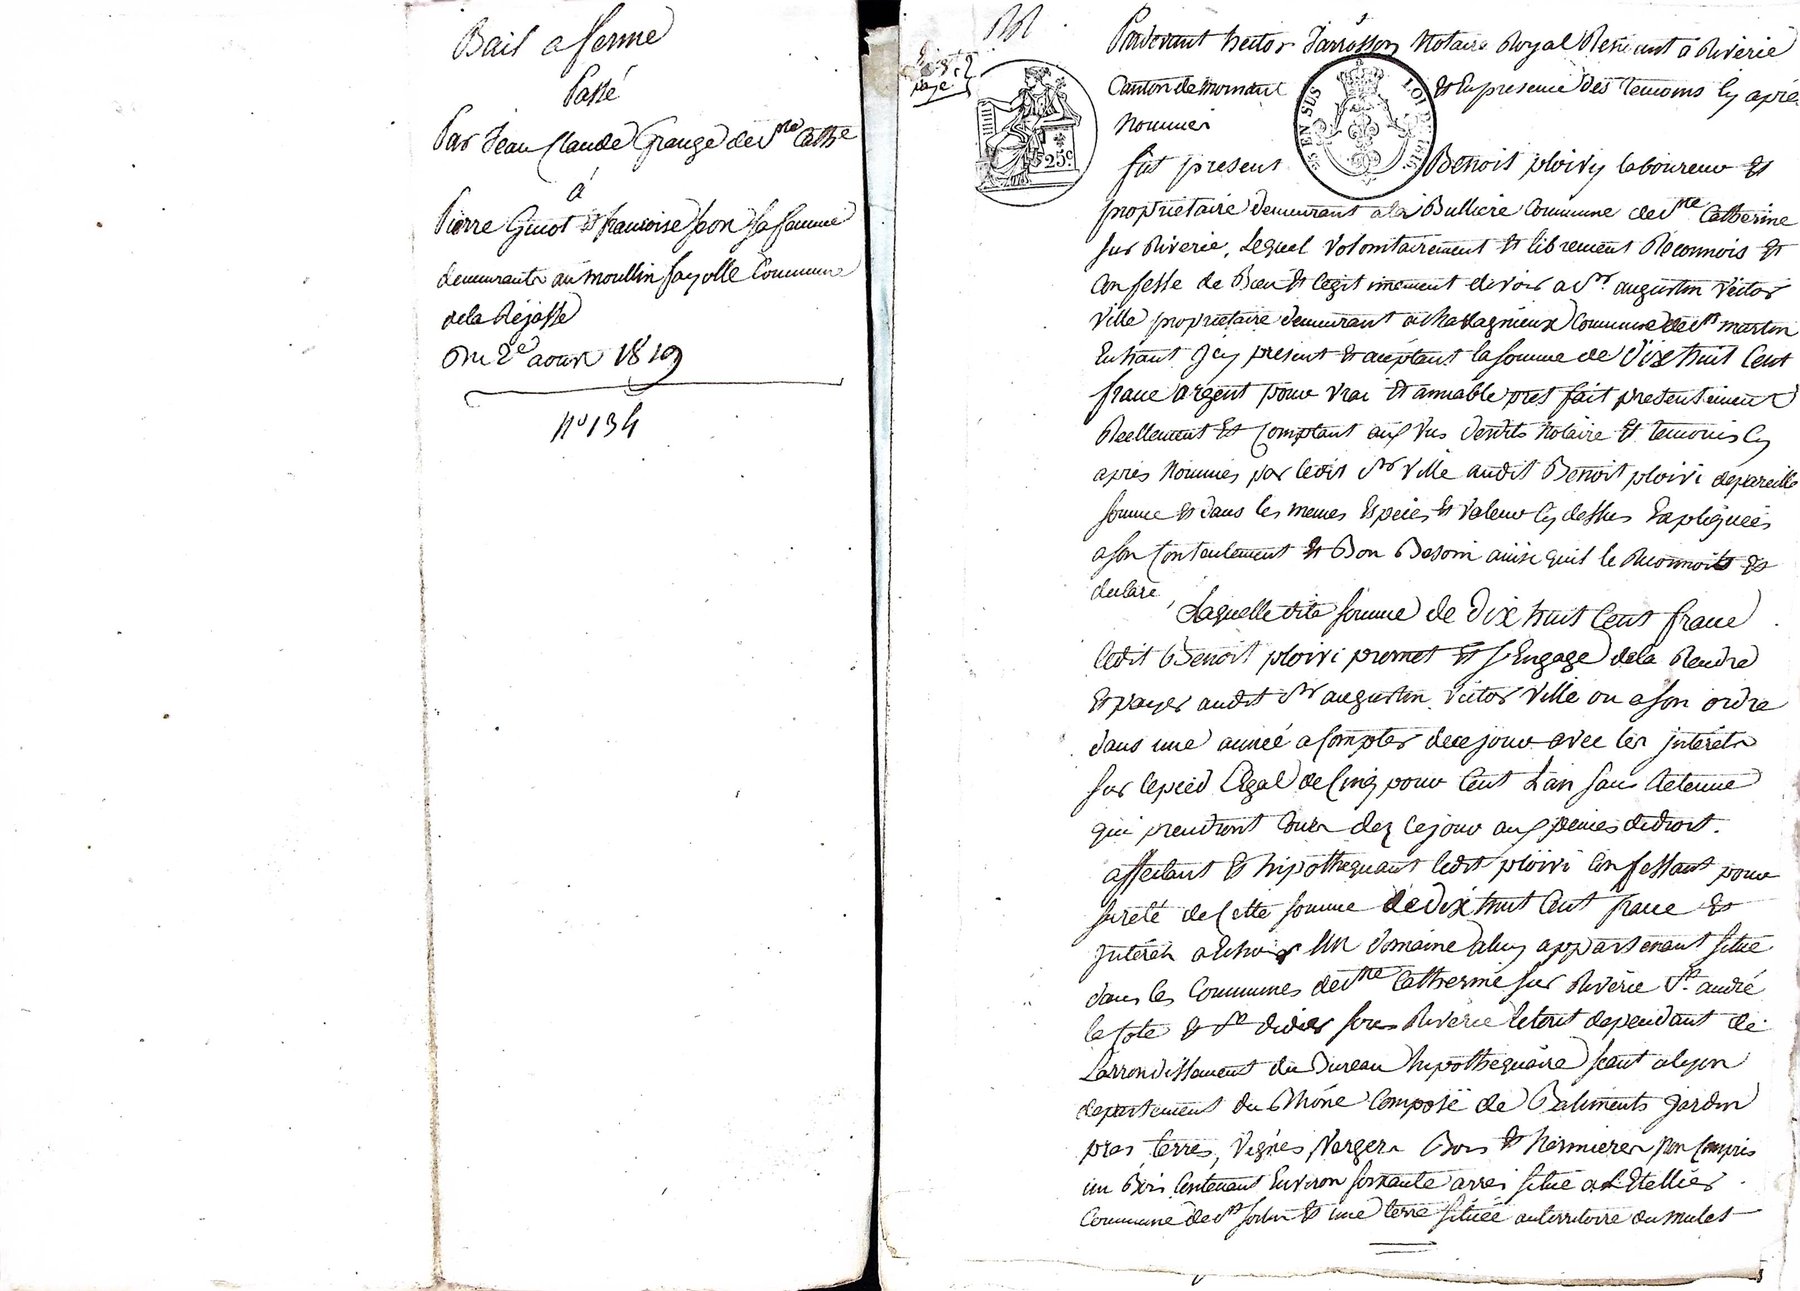 Bail a ferme
Passé
Par Jean Claude Grange de Ste Cathe
à
Pierre Guiot et francoise Jeon sa femme
demeurants au moullin fayolle Commune
de la Réjasse
Du 2e aoust 1819
No 134
Pardevant hector Jarrosson Notaire Royal Residant à Riverie
Canton de mornant et En presence des temoins Cy après
Nommés
25 c
25 EN SUS LOI DE 1816
fut present Benoit ploivy laboureur et
propriétaire demeurant a la Bulliere Commune de Ste Catherine
sur Riverie, Lequel Volontairement et librement Reconnois et
Confesse de Bien et legitimement devoir a Sr augustin Victor
Ville propriétaire demeurant a Chatagnieux Commune de St martin
En haut Jcy present et acéptant la somme de Dix huit Cent
franc argent pour vrai et amiable pret fait presentement
Reellement et Comptant aux vus desdits Notaire et temoins Cy
après Nommés par ledit Sr Ville audit Benoit ploivi de pareille
somme et dans les memes Espéces et Valeur Cy dessus Expliquées
a son Contentement et Bon Besoin ainsi quil le Reconnoit et
declare,
Laquelle dite somme de Dix huit Cent franc
ledit Benoit ploivi promet et s'Engage de la Rendre
et payer audit Sr augustin Victor Ville ou a son ordre
dans une année a Compter de ce jour avec les jntérèts
sur le pied Légal de Cinq pour Cent L'an sans Retenue
qui prendront Cours dez ce jour aux peines de droit.
affectant et hipothequant ledit ploivi Confessant pour
sureté de Cette somme de Dix huit Cent franc et
jntérèts a Echoir Un domaine a luy appartenant situé
dans les Communes de Ste Catherine sur Riverie St andré
la Cote et St didier sous Riverie le tout dependant de
L'arrondissement du Bureau hypothequaire séant a Lyon
departement du Rhône Composé de Batiments Jardin
pres terres, Vignes Vergers Bois et hermieres Non Compris
un Bois Contenant Environ soixante ares situé a L'Etellier
Commune de St sorlin et une terre située au territoire du mulet